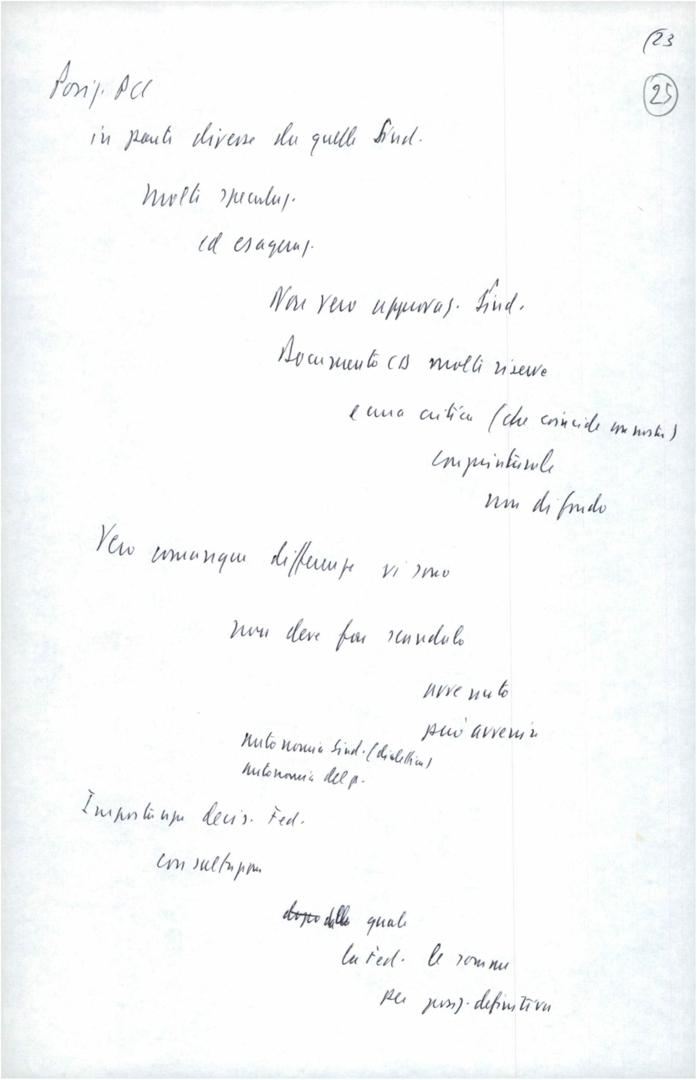 (23
25
Posiz. PCI
in parte diverse da quelle Sind.
Molti speculaz.
ed esageraz.
Non vero approvaz. Sind.
Documento CD molti riserve
e una critica (che coincide con nostra)
congiunturale
non di fondo
Vero comunque differenze vi sono
non deve far scandalo
avvenuto
può avvenire
Autonomia Sind. (dialettica)
Autonomia del p.
Importanza decis. Fed.
consultazione
dopo della quale
la Fed. le somme
per posiz. definitiva